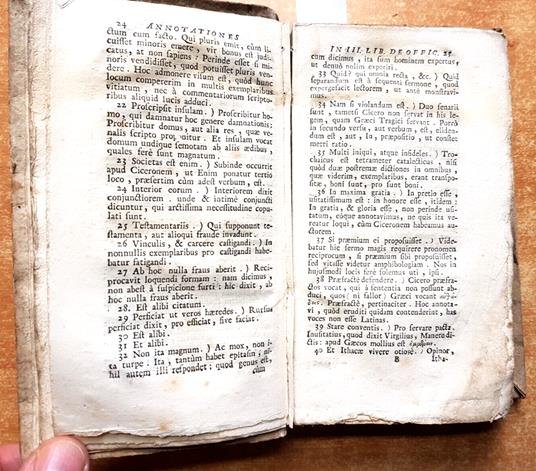 24 ANNOTATIONES
ctum cum facto. Qui pluris emit, cùm li-
cuisset minoris emere, vir bonus est judi-
catus, at non sapiens: Perinde esset si mi-
noris vendidisset, quod potuisset pluris ven-
dere. Hoc admonere visum est, quòd hunc
locum compererim in multis exemplaribus
vitiatum, nec à commentariorum scripto-
ribus aliquid lucis adduci.
22 Proscripsit insulam. ) Proscribitur ho-
mo, qui damnatur hoc genere damnationis:
Proscribitur domus, aut alia res, quæ ve-
nalis scripto proponitur. Et insulam vocat
domum undique semotam ab aliis ædibus,
quales ferè sunt magnatum.
23 Societas est enim. ) Subinde occurrit
apud Ciceronem, ut Enim ponatur tertio
loco, præsertim cùm adest verbum, est.
24 Interior eorum. ) Interiorem dixit
conjunctiorem. unde & intimè conjuncti
dicuntur, qui arctissima necessitudine copu-
lati sunt.
25 Testamentariis. ) Qui supponunt te-
stamenta, aut alioqui fraude invadunt.
26 Vinculis, & carcere castigandi. ) In
nonnullis exemplaribus pro castigandi habe-
batur fatigandi
27 Ab hoc nulla fraus aberit. ) Reci-
procavit loquendi formam: nam dicimus,
non abest à suspicione furti: hic dixit, ab
hoc nulla fraus aberit.
28. Est alibi citatum.
29 Perficiat ut veros hæredes. ) Rursus
perficiat dixit, pro efficiat, sive faciat.
30 Est alibi.
31 Et alibi.
32 Non ita magnum. ) Ac mox, non i-
ta turpe. Ita, tantùm habet epitasin, ni-
hil autem illi respondet; quod genus est,
cùm
IN III. LIB. DE OFFIC. 25
cum dicimus, ita sum hominem expertus,
ut denuò nolim experiri.
33 Quid? qui omnia recta, &c. ) Quid
separandum est à sequenti sermone, quod
expergefacit lectorem, ut antè monstravi-
mus.
34 Nam si violandum est, ) Duo senarii
sunt, tametsi Cicero non servat in his le-
gem, quam Græci Tragici servant. Porrò
in secundo versu, aut verbum, est, eliden-
dum est, aut, In, præpositio, ut constet
metri ratio.
35 Multi iniqui, atque infideles. ) Tro-
chaicus est tetrameter catalecticus, nisi
quòd duæ postremæ dictiones in omnibus,
quæ viderim, exemplaribus, erant transpo-
sitæ, boni sunt, pro sunt boni.
36 In maxima gratia. ) In pretio esse,
usitatissimum est: in honore esse, itidem:
In gratia, & gloria esse, non perinde usi-
tatum, eóque annotavimus, ne quis ita ve-
reatur loqui, cùm Ciceronem habeamus au-
ctorem.
37 Si præmium ei proposuisset. ) Videba-
tur hic sermo magis requirere pronomen
reciprocum, si præmium sibi proposuisset,
sed vitasse videtur amphibologiam. Nos in
hujusmodi locis ferè solemus uti, ipsi.
38 Præfractè defendere. ) Cicero præfra-
ctos vocat, qui à sententia non possunt ab-
duci, quos (ni fallor) Græci vocant
Præfractè, pertinaciter. Hoc annota-
vi, quòd eruditi quidam contenderint, has
voces non esse Latinas.
39 Stare conventis. ) Pro servare pacta.
Inusitatius, quod dixit Virgilius, Manere di-
ctis: apud Græcos mollius est
40 Et Ithacæ vivere otiosè. ) Opinor,
B Itha-